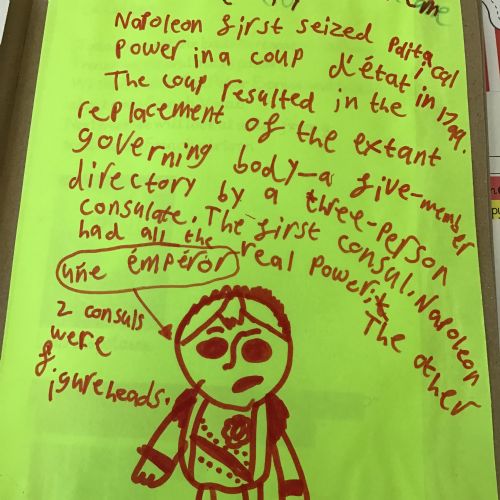 Napoleon first seized political
power in a coup d'état in 1799.
The coup resulted in the
replacement of the extant
governing body—a five-member
directory by a three-person
consulate. The first consul, Napoleon
had all the real power; The other
2 consuls
were
figureheads.
uñe émpéror